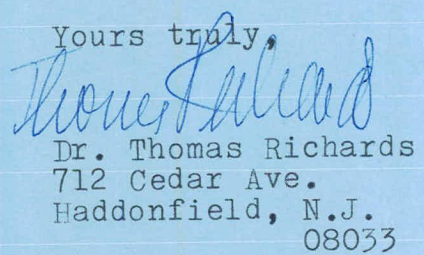 Yours truly,
Thomas Richards
Dr. Thomas Richards
712 Cedar Ave.
Haddonfield, N.J.
08033